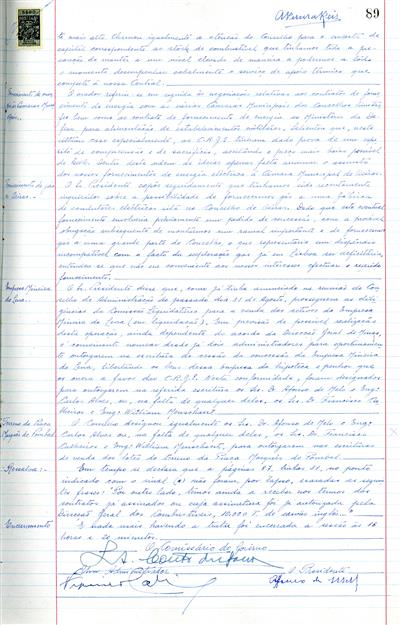 89
te mais alto chamou igualmente a atenção do Conselho para o
capital correspondente ao stock de combustível que tinhamos toda a
de manter a um nível elevado de maneira a podermos a todo
o momento desempenhar cabalmente o serviço de apoio térmico que
compete a nossa central.
O orador referiu-se em seguida às negociações relativas aos contratos de
de energia com as várias Câmaras Municipais dos Concelhos
bem como ao contrato de fornecimento de energia ao Ministério da
para alimentação de estabelecimentos militares. Salientou que, neste
último caso especialmente, as C.R.G.E. tinham dado prova do seu
de compreensão e de aceitando o preço mais baixo possível
Dentro desta ordem de ideias apenas falta arrumar o assunto
dos nossos fornecimentos de energia eléctrica à Câmara Municipal de Oeiras.
O Sr. Presidente expôs seguidamente que tinhamos sido recentemente
sobre a possibilidade de fornecermos gás a uma fábrica
de condutores eléctricos no Concelho de Oeiras. Dado que este eventual
fornecimento envolveria previamente um pedido de concessão, com a provável
obrigação subsequente de montarmos um ramal importante e de fornecermos
gás a uma grande parte do Concelho, o que representaria um dispêndio
incompatível com o facto da exploração gás já em Lisboa ser deficitária,
entendeu-se que não era conveniente aos nossos interesses efectuar o referido
fornecimento.
Empresa Mineira
do Lena.-
O Sr. Presidente disse que, como já tinha anunciado na reunião do
de Administração do passado dia 31 de Agosto, prosseguem as
da Comissão Liquidatária para a venda dos activos da Empresa
Mineira do Lena (em liquidação). Em previsão da possível realização
desta operação, ainda dependente do acordo da Direcção Geral de Minas,
é conveniente nomear desde já dois administradores para oportunamente
outorgarem na escritura de cessão da concessão da Empresa Mineira
do Lena, libertando os bens dessa Empresa da hipoteca e penhor que
os onera a favor das C.R.G.E. Nesta conformidade, foram designados
para outorgarem na referida escritura os Srs. Dr. Afonso de Melo e Eng.
Carlos Alves, ou, na falta de qualquer deles, os Srs. Dr. Francisco
e Eng. William
Terreno da Praça
Marquês de Pombal
O Conselho designou igualmente os Srs. Dr. Afonso de Melo e Eng.
Carlos Alves ou, na falta de qualquer deles, os Srs. Dr. Francisco
e Eng. William para outorgarem as escrituras
de venda dos lotes do terreno da Praça Marquês de Pombal.
Ressalva:-
Em tempo se declara que a páginas 87, linhas 31, no ponto
indicado com o sinal (a) não foram, por lapso, exaradas as seguintes
frases: "Por outro lado temos ainda a receber nos termos dos
contratos já assinados ou cuja assinatura foi já autorizada pela
Direcção Geral dos Combustíveis, 10.000 T. de carvão inglês..."
Encerramento
E nada mais havendo a tratar foi encerrada a sessão às 16
horas e 20 minutos.
O Comissário do Governo
Um Administrador
O Presidente